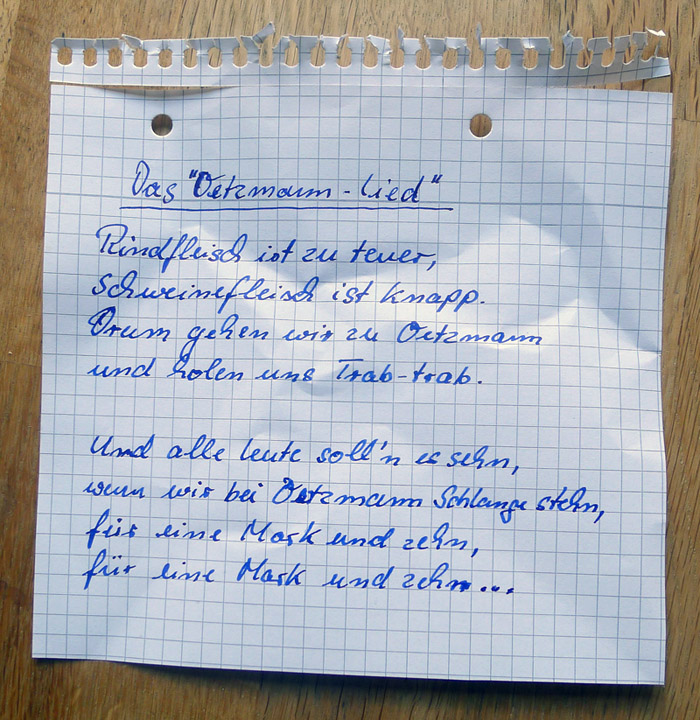 Das "Oetzmann-Lied"
Rindfleisch ist zu teuer,
Schweinefleisch ist knapp.
Drum gehen wir zu Oetzmann
und holen uns Trab-trab.
Und alle Leute soll'n es sehn,
wenn wir bei Oetzmann Schlange stehn,
für eine Mark und zehn,
für eine Mark und zehn...